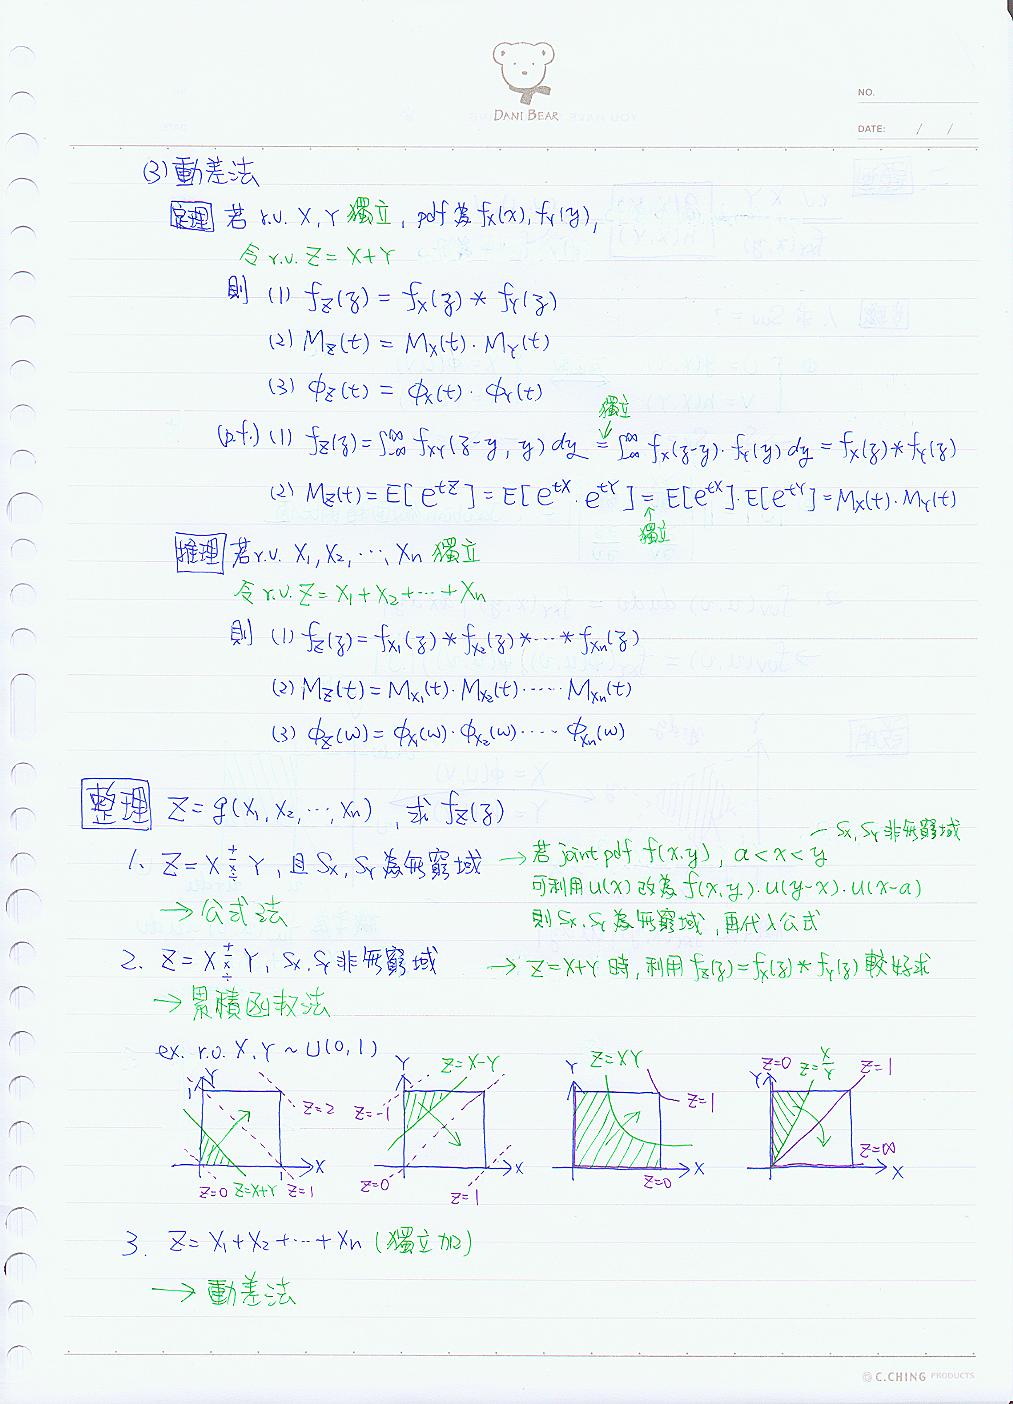 DANI BEAR
NO.
DATE: / /
(3) 動差法
定理 若 r.v. X, Y 獨立, pdf 為 fX(x), fY(y),
令 r.v. Z = X+Y
則 (1) fZ(z) = fX(z) * fY(z)
(2) MZ(t) = MX(t)·MY(t)
(3) ϕZ(t) = ϕX(t)·ϕY(t)
獨立
(p.f.) (1) fZ(z) = ∫-∞^∞ fXY(z-y, y) dy = ∫-∞^∞ fX(z-y)·fY(y) dy = fX(z) * fY(z)
(2) MZ(t) = E[e^tZ] = E[e^tX·e^tY] = E[e^tX]·E[e^tY] = MX(t)·MY(t)
↑
獨立
推理 若 r.v. X1, X2, ⋯, Xn 獨立
令 r.v. Z = X1 + X2 + ⋯ + Xn
則 (1) fZ(z) = fX1(z) * fX2(z) * ⋯ * fXn(z)
(2) MZ(t) = MX1(t)·MX2(t)⋯⋯MXn(t)
(3) ϕZ(ω) = ϕX1(ω)·ϕX2(ω)⋯⋯ϕXn(ω)
整理 Z = g(X1, X2, ⋯, Xn), 求 fZ(z)
1. Z = X + × ÷ Y, 且 SX, SY 為無窮域
→ 公式法
SX, SY 非無窮域
→ 若 joint pdf f(x,y), a < x < y
可利用 u(x) 改為 f(x,y)·u(y-x)·u(x-a)
則 SX, SY 為無窮域, 再代入公式
2. Z = X + × ÷ Y, SX, SY 非無窮域 → Z=X+Y 時, 利用 fZ(z) = fX(z) * fY(z) 較好求
→ 累積函數法
ex. r.v. X, Y ~ U(0,1)
Y 1 Z=2 X 1 Z=0 Z=X+Y Z=1
Y Z=X-Y Z=-1 X Z=0 Z=1
Y Z=XY Z=1 X Z=0
Z=0 Z=X/Y Z=1 Y Z=∞ X
3. Z = X1 + X2 + ⋯ + Xn (獨立加)
→ 動差法
© C.CHING PRODUCTS